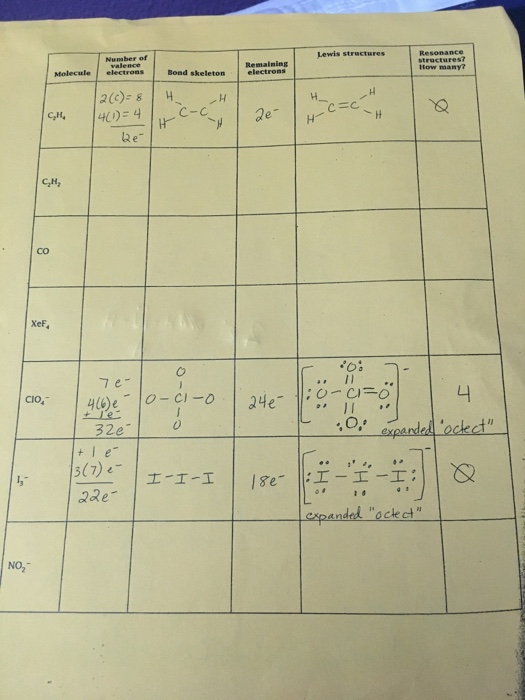 Molecule
Number of
valence
electrons
Bond skeleton
Remaining
electrons
Lewis structures
Resonance
structures?
How many?
C₂H₄
2(c)= 8
4(1)= 4
12e⁻
H H
C-C
H H
2e⁻
H H
C=C
H H
Ø
C₂H₂
CO
XeF₄
ClO₄⁻
7e⁻
4(6)e⁻
+ 1e⁻
32e⁻
O
O-Cl-O
O
24e⁻
O
O-Cl=O
O
-
expanded "octect"
4
I₃⁻
+ 1 e⁻
3(7)e⁻
22e⁻
I-I-I
18e⁻
I-I-I
-
expanded "octect"
Ø
NO₂⁻